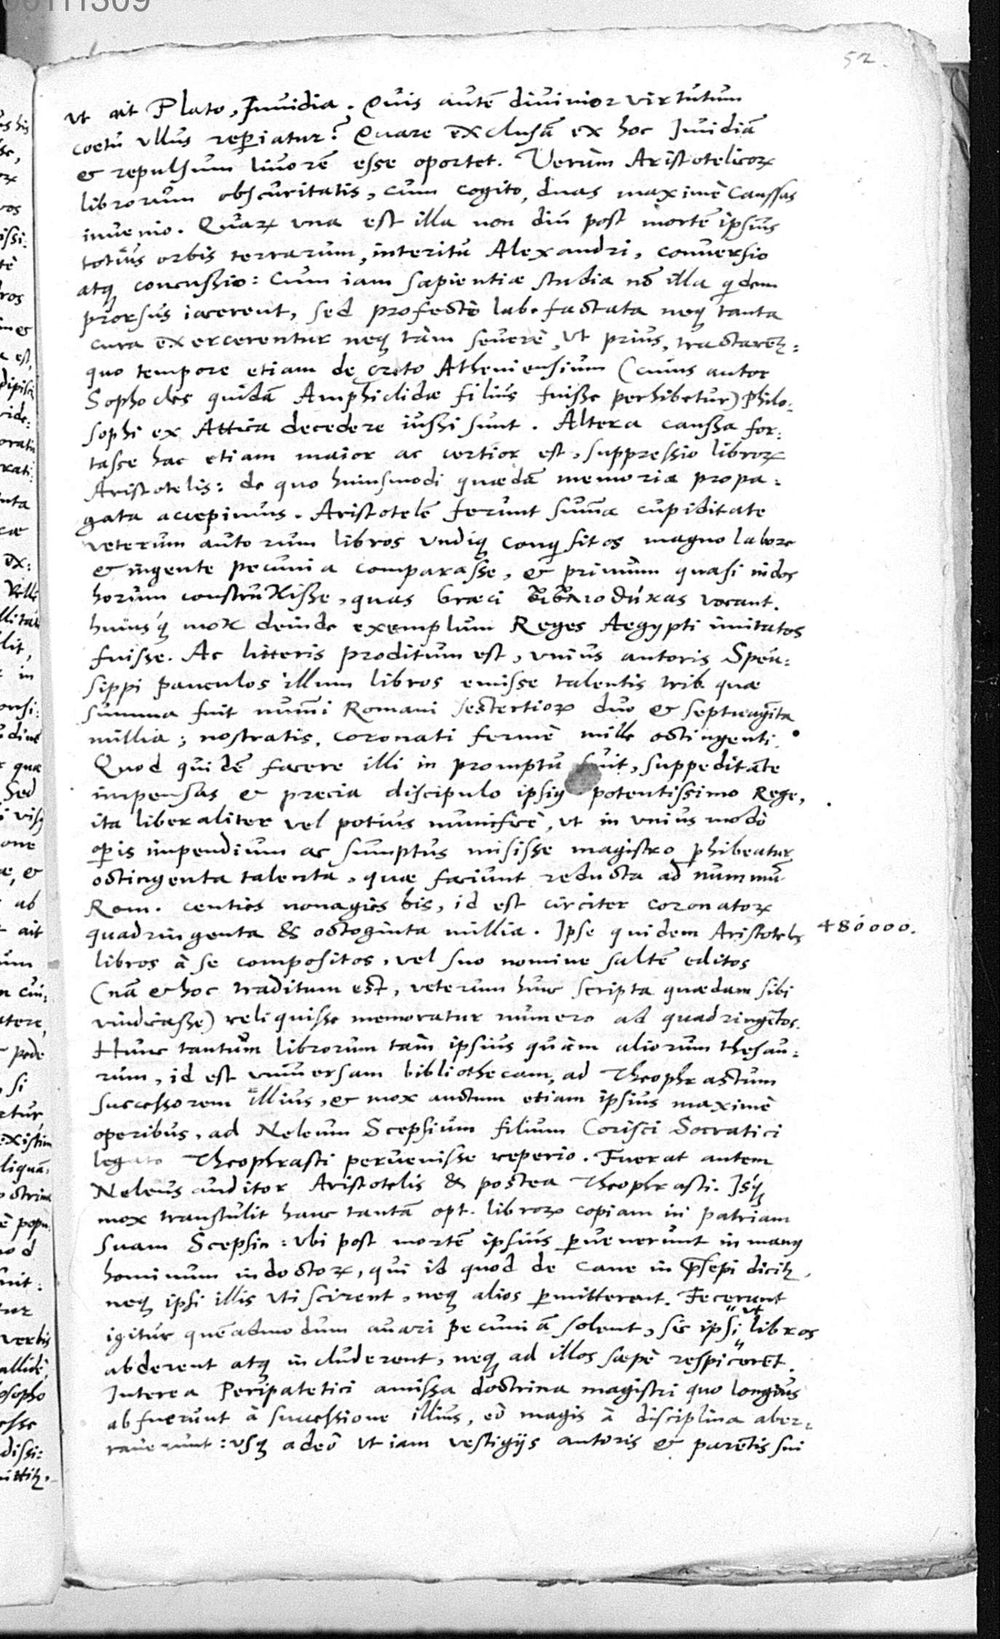 52.
ut ait Plato, Inuidia. Quis autē diuinior virtutum
coetu ullus repiatur? Quare exclusā ex hoc Inuidiā
& repulsum liuorē esse oportet. Verùm Aristotelicoꝝ
librorum obscuritatis, cum cogito, duas maximè caussas
inuenio. Quaꝝ vna est illa non diu post mortē ipsius
totius orbis terrarum, interitu Alexandri, conuersio
atq concussio: Cum iam sapientiæ studia nō illa qidem
prorsus iacerent, sed profectò labefactata neq tanta
cura exercerentur neq tàm seuerè, ut prius, tractarētꝛ:
quo tempore etiam decreto Atheniensium (cuius autor
Sophocles quidā Amphiclidæ filius fuisse perhibetur) Philo-
sophi ex Attica decedere iussi sunt. Altera caussa for-
tasse hac etiam maior ac certior est, suppressio libroꝝ
Aristotelis: de quo huiusmodi quædā memoria propa-
gata accepimus. Aristotelē ferunt sum̄a cupiditate
veterum autorum libros vndiq conqisitos magno labore
& ingente pecunia comparasse, & primùm quasi nidos
horum construxisse, quas Græci βιβλιοθήκας vocant.
huiusq́ mox deinde exemplum Reges Aegypti imitatos
fuisse. Ac litteris proditum est, vnius autoris Speu-
sippi pauculos illum libros emisse talentis trib. quæ
summa fuit num̄i Romani sestertioꝝ duo & septuagīta
millia; nostratis, coronati fermè mille octingenti.
Quod quidē facere illi in promptu fuit, suppeditāte
impensas & precia discipulo ipsiꝰ potentissimo Rege,
ita liberaliter vel potius munificè, ut in vnius modò
opis impendium ac sumptus misisse magistro phibeatur
octingenta talenta, quæ faciunt reducta ad nummū
Rom. centies nonagies bis, id est circiter coronatoꝝ
quadringenta & octoginta millia. Ipse quidem Aristoteles
480000.
libros à se compositos, vel suo nomine saltē editos
(nā & hoc traditum est, veterum hunc scripta quædam sibi
vindicasse) reliquisse memoratur numero ad quadringētos.
Hunc tantum librorum tàm ipsius quàm aliorum thesau-
rum, id est vniuersam bibliothecam, ad Theophrastum
successorem illius, & mox auctum etiam ipsius maximè
operibus, ad Neleum Scepsium filium Corisci Socratici
legato Theophrasti peruenisse reperio. Fuerat autem
Neleus auditor Aristotelis & postea Theophrasti. Isq́
mox transtulit hanc tantā opt. libroꝝ copiam in patriam
suam Scepsin: Vbi post mortē ipsius puenerunt in manꝰ
hominum indoctoꝝ, qui id quod de Cane in psepi dicitꝛ,
neq ipsi illis uti scirent, neq alios pmitterent. Fecerunt
igitur quēadmodum auari pecuniā solent, sic ipsi ut libros
abderent atq includerent, neq ad illos sæpè respicerēt.
Interea Peripatetici amissa doctrina magistri quo longius
abfuerunt à successione illius, eò magis à disciplina aber-
rauerunt: usq adeò ut iam vestigijs autoris & parētis sui